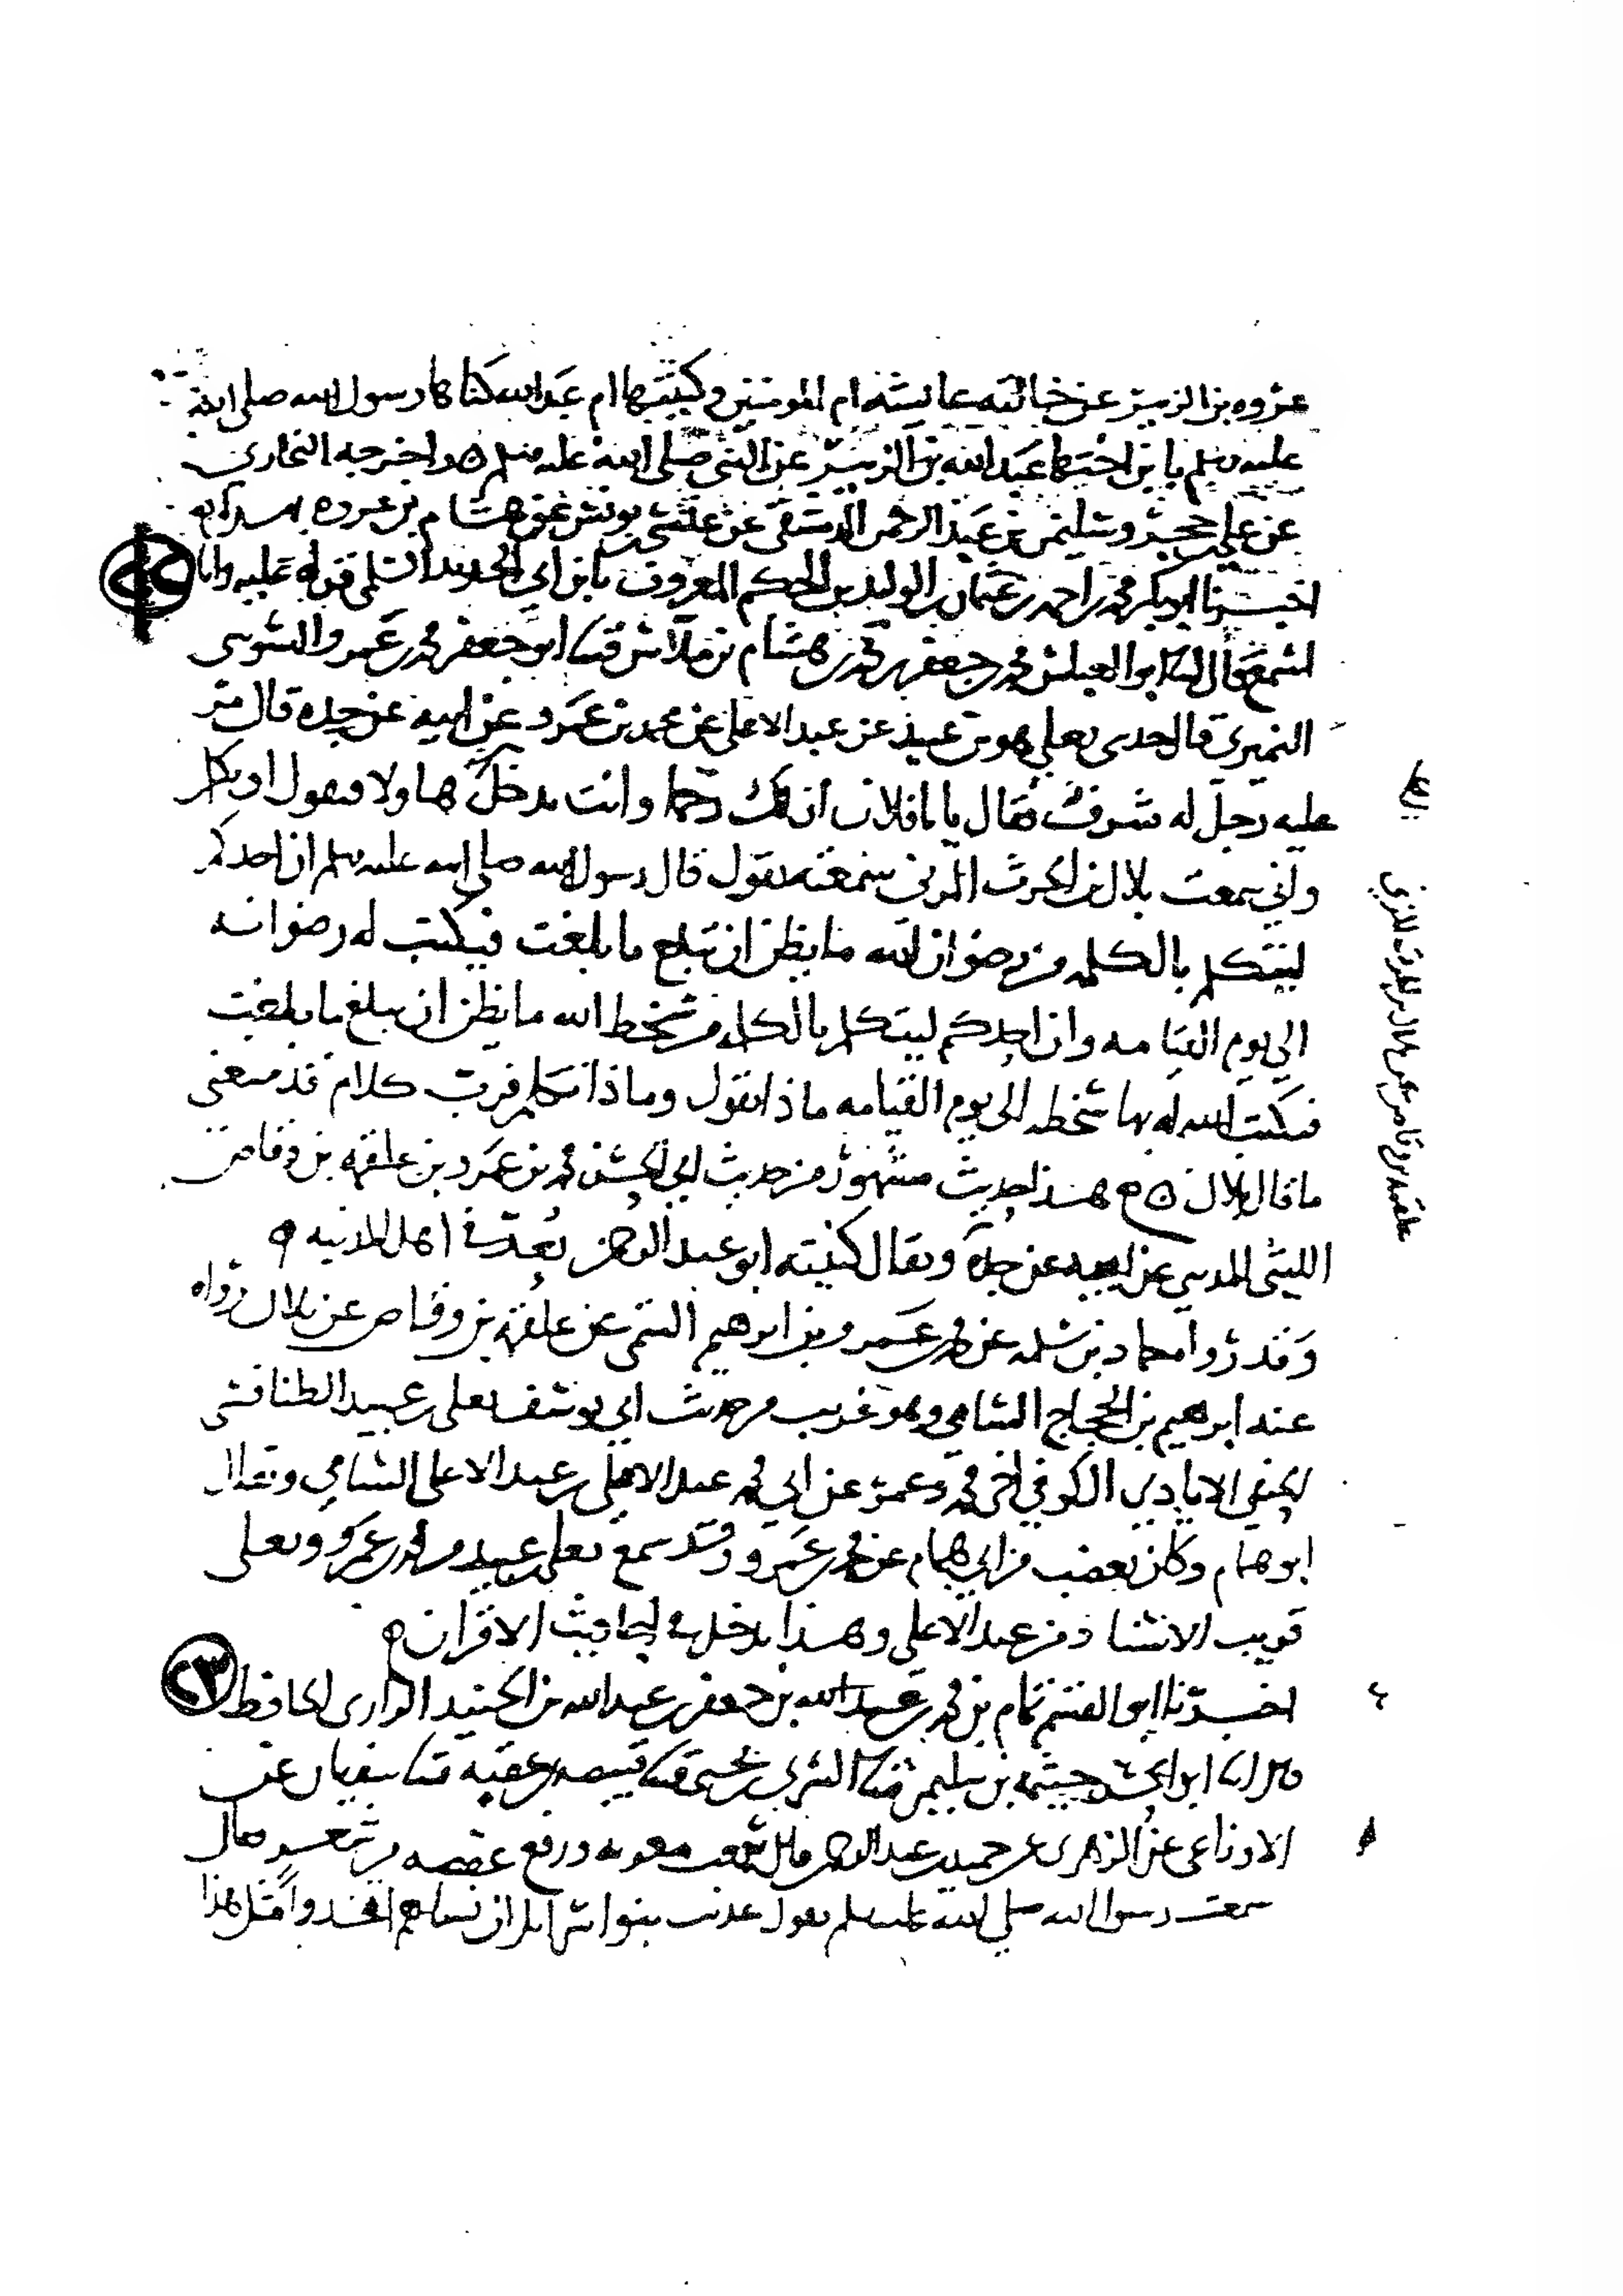 عروه بن الزبير عن خالته عايشه ام المومنين وكنيتها ام عبد الله كناها رسول الله صلى الله
عليه وسلم بابن اختها عبد الله بن الزبير عن النبي صلى الله عليه وسلم ه واخرجه البخاري
عن علي بن حجر وسليمن بن عبد الرحمن الدمشقي عن عيسى بن يونس عن هشام بن عروه
اخبرنا ابو بكر محمد بن احمد بن عثمان بن الوليد بن الحكم المعروف بابن ابي الحديد السلمي قراه عليه وانا
اسمع قال انا ابو العباس محمد بن جعفر بن محمد بن هشام بن ملاس ثنا ابو جعفر محمد بن عمرو السوسي
النميري قال حدثني يعلى هو بن عبيد عن عبد الاعلى عن محمد بن عمرو عن ابيه عن جده قال مر
عليه رجل له شرف فقال يا با فلان ان لك رحما وانت تدخل هاولا فيقول او يكلم
واني سمعت بلال بن الحرث المزني سمعته يقول قال رسول الله صلى الله عليه وسلم ان احدكم
ليتكلم بالكلمه من رضوان الله ما يظن ان تبلغ ما بلغت فيكتب له رضوانه
الى يوم القيامه وان احدكم ليتكلم بالكلمه من سخط الله ما يظن ان تبلغ ما بلغت
فيكتب الله له بها سخطه الى يوم القيامه ماذا تقول وماذا تكلم فرب كلام قد منعني
ما قال بلال ه هذا حديث مشهور من حديث ابي الحسن محمد بن عمرو بن علقمه بن وقاص
الليثي المديني عن ابيه عن جده ويقال كنيته ابو عبد الرحمن يعد في اهل المدنيه ه
وقد رواه حماد بن سلمه عن محمد بن عمرو بن ابرهيم التيمي عن علقمه بن وقاص عن بلال رواه
عنه ابرهيم بن الحجاج الشامي وهو غريب من حديث ابي يوسف يعلى بن عبيد الطنافسي
الحنفي الايادي الكوفي اخي محمد وعمر عن ابي محمد عبد الاعلى بن عبد الاعلى الشامي ويقال
ابو همام وكان يغضب من ابي همام عن محمد بن عمرو وقد سمع يعلى بن عبيد من محمد بن عمرو ويعلى
قريب الاسناد من عبد الاعلى وهذا يدخل في احاديث الاقران ه
اخبرنا ابو القسم تمام بن محمد بن عبد الله بن جعفر بن عبد الله بن الجنيد الرازي الحافظ ٢٣
قال انا ابو الحسن خيثمه بن سليمن ثنا السري بن يحيى ثنا قبيصه بن عقبه ثنا سفيان عن
الاوزاعي عن الزهري عن حميد بن عبد الرحمن قال سمعت معويه ورفع عقصه من شعر فقال
سمعت رسول الله صلى الله عليه وسلم يقول عذبت بنوا اسرائيل ان نساهم اتخذوا مثل هذا
علقمه بن وقاص عن بلال بن الحرث المزني